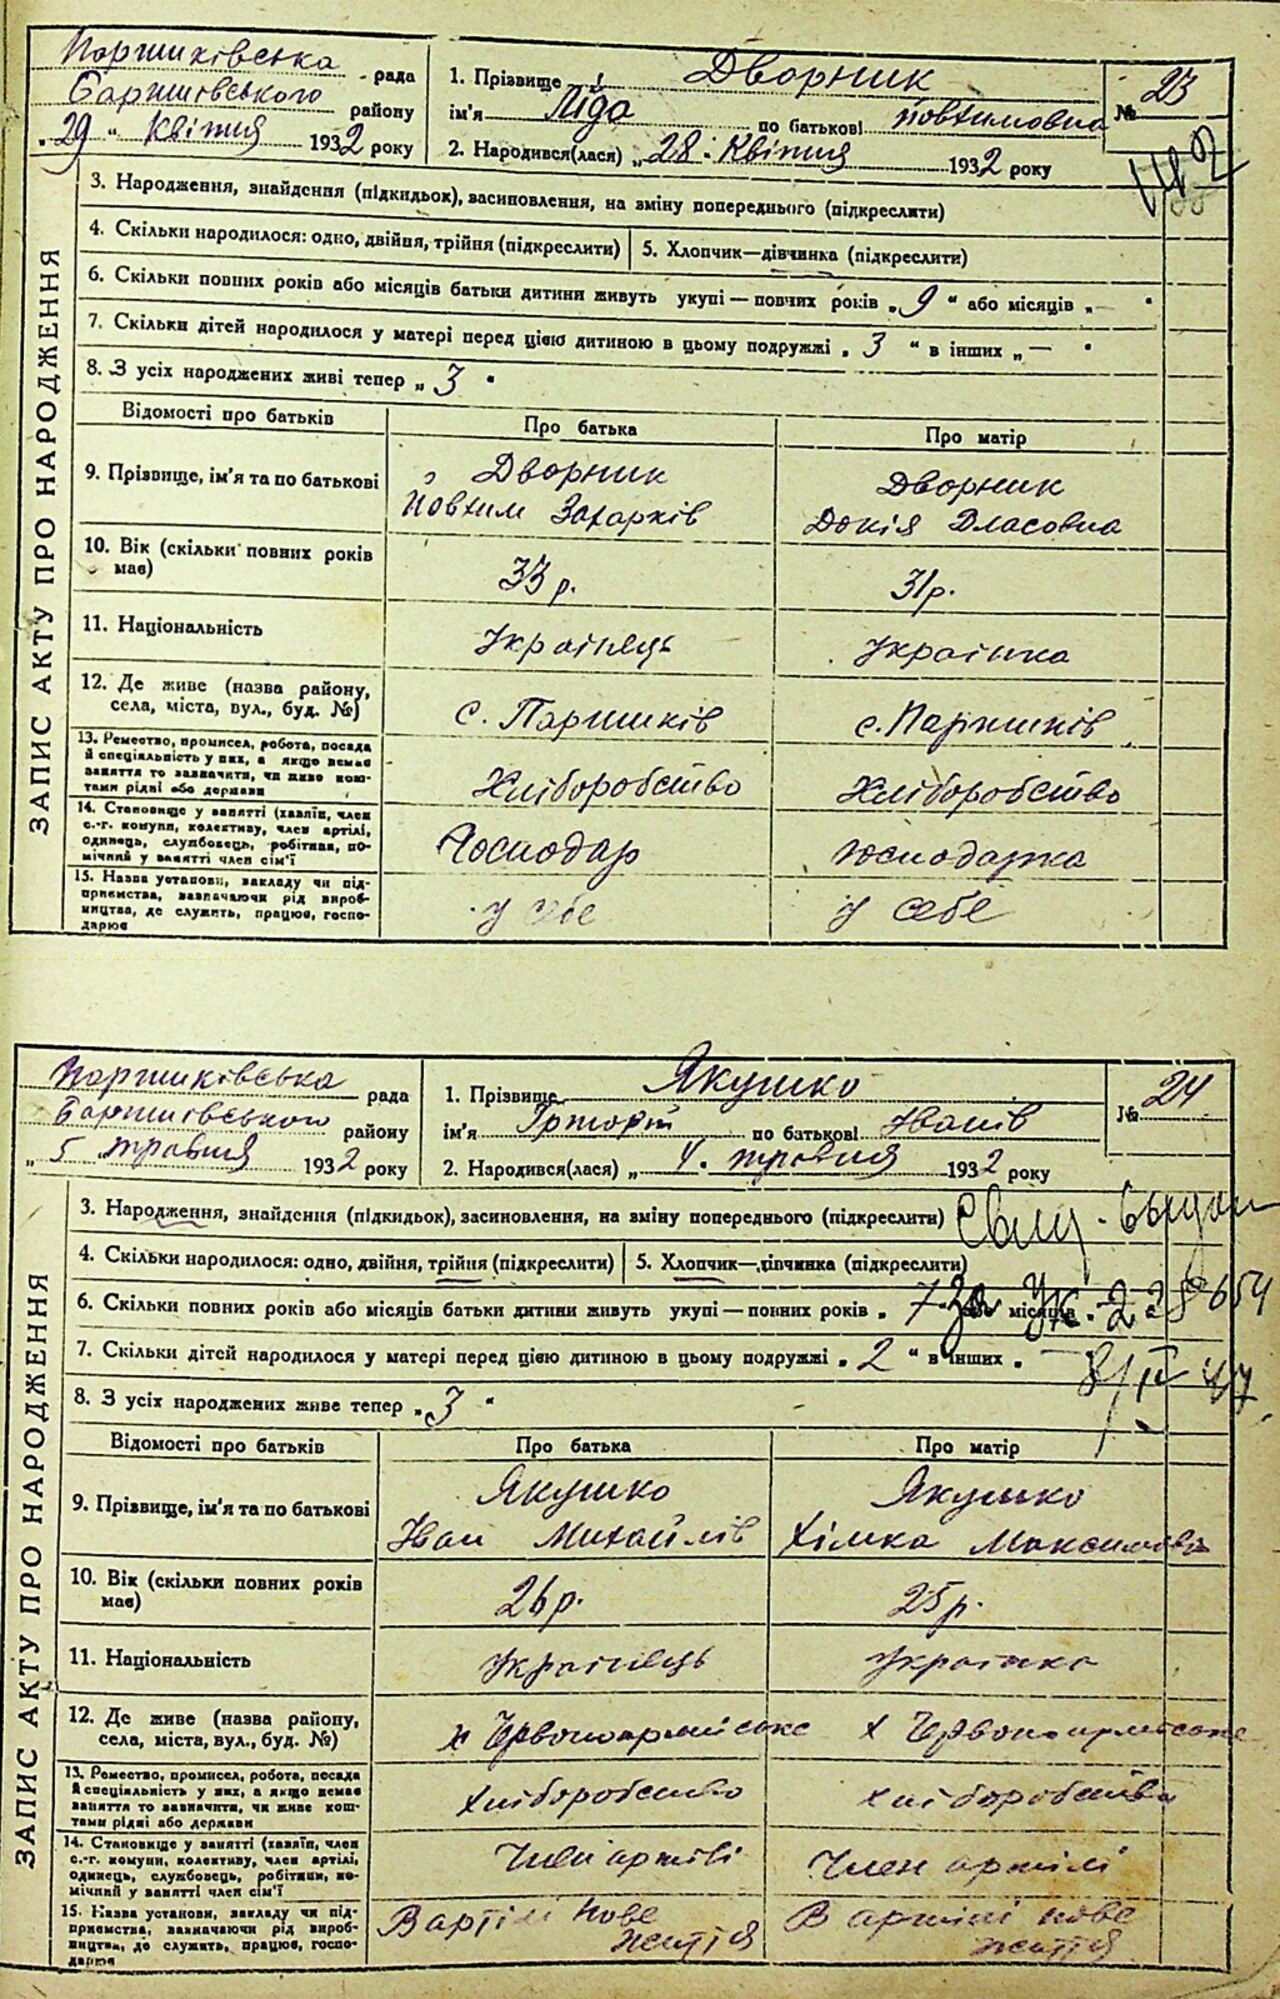 Паришківська рада
Баришівського району
„29“ Квітня 1932 року
1. Прізвище Дворник
ім'я Ліда по батькові Йовхимовна
2. Народився(лася) „28“ Квітня 1932 року
№ 23
ЗАПИС АКТУ ПРО НАРОДЖЕННЯ
3. Народження, знайдення (підкидьок), засиновлення, на зміну попереднього (підкреслити)
4. Скільки народилося: одно, двійня, трійня (підкреслити) 5. Хлопчик—дівчинка (підкреслити)
6. Скільки повних років або місяців батьки дитини живуть укупі — повних років „9“ або місяців „—“
7. Скільки дітей народилося у матері перед цією дитиною в цьому подружжі „3“ в інших „—“
8. З усіх народжених живі тепер „3“
Відомості про батьків Про батька Про матір
9. Прізвище, ім'я та по батькові
Дворник
Йовхим Захарків
Дворник
Докія Власовна
10. Вік (скільки повних років має)
33 р. 31 р.
11. Національність Українець Українка
12. Де живе (назва району,
села, міста, вул., буд. №)
с. Паришків с. Паришків
13. Ремество, промисел, робота, посада
й спеціяльність у них, а якщо немає
заняття то зазначити, чи живе кош-
тами рідні або держави
Хліборобство Хліборобство
14. Становище у занятті (хазяїн, член
с.-г. комуни, колективу, член артілі,
одинець, службовець, робітник, по-
мічний у занятті член сім'ї
Господар господарка
15. Назва установи, закладу чи під-
приємства, зазначаючи рід вироб-
ництва, де служить, працює, госпо-
дарює
у себе у себе
Паришківська рада
Баришівського району
„5“ травня 1932 року
1. Прізвище Якушко
ім'я Григорій по батькові Іванів
2. Народився(лася) „4“ травня 1932 року
№ 24
ЗАПИС АКТУ ПРО НАРОДЖЕННЯ
3. Народження, знайдення (підкидьок), засиновлення, на зміну попереднього (підкреслити)
4. Скільки народилося: одно, двійня, трійня (підкреслити) 5. Хлопчик—дівчинка (підкреслити)
6. Скільки повних років або місяців батьки дитини живуть укупі — повних років „7 або місяців
7. Скільки дітей народилося у матері перед цією дитиною в цьому подружжі „2“ в інших „—
8. З усіх народжених живе тепер „3“
Відомості про батьків Про батька Про матір
9. Прізвище, ім'я та по батькові
Якушко
Іван Михайлів
Якушко
Хімка Максимовна
10. Вік (скільки повних років має)
26 р. 25 р.
11. Національність Українець Українка
12. Де живе (назва району,
села, міста, вул., буд. №)
х Червоноармійське х Червоноармійське
13. Ремество, промисел, робота, посада
й спеціяльність у них, а якщо немає
заняття то зазначити, чи живе кош-
тами рідні або держави
хліборобство хліборобство
14. Становище у занятті (хазяїн, член
с.-г. комуни, колективу, член артілі,
одинець, службовець, робітник, по-
мічний у занятті член сім'ї
Член артілі Член артілі
15. Назва установи, закладу чи під-
приємства, зазначаючи рід вироб-
ництва, де служить, працює, госпо-
дарює
В артілі нове
життя
В артілі нове
життя